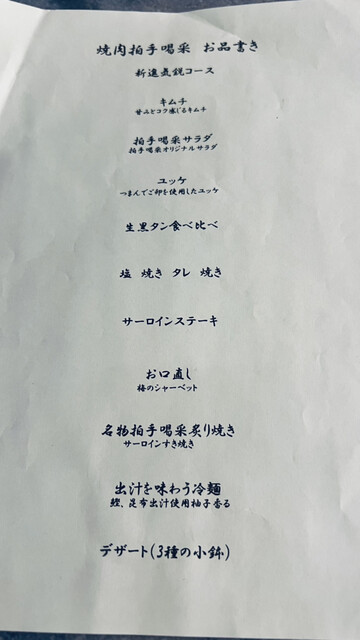 焼肉拍手喝采 お品書き
新進気鋭コース
キムチ
甘みとコク感じるキムチ
拍手喝采サラダ
拍手喝采オリジナルサラダ
ユッケ
つまんでご卵を使用したユッケ
生黒タン食べ比べ
塩 焼き タレ 焼き
サーロインステーキ
お口直し
梅のシャーベット
名物拍手喝采炙り焼き
サーロインすき焼き
出汁を味わう冷麺
鰹、昆布出汁使用柚子香る
デザート(3種の小鉢)